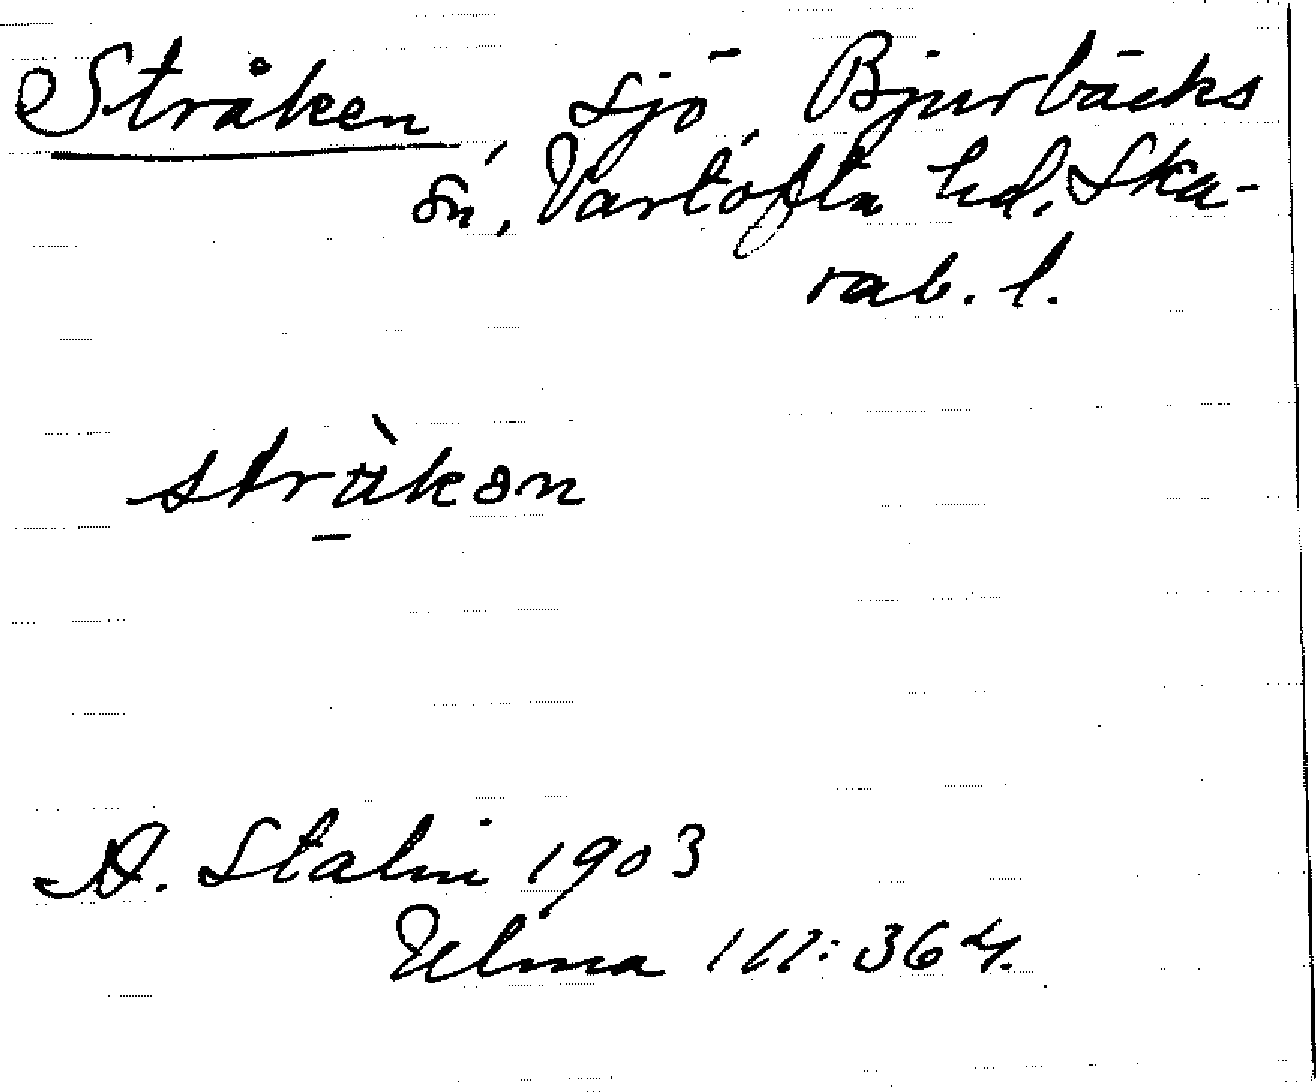 Stråken, sjö, Bjurbäcks
sn, Vartofta hd, Ska-
rab. l.
stråkən
A. Stalin 1903
Ulma 111:364.